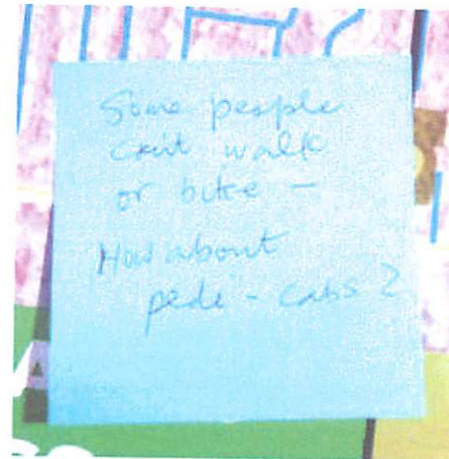 Some people
can't walk
or bike -
How about
pede - cabs ?